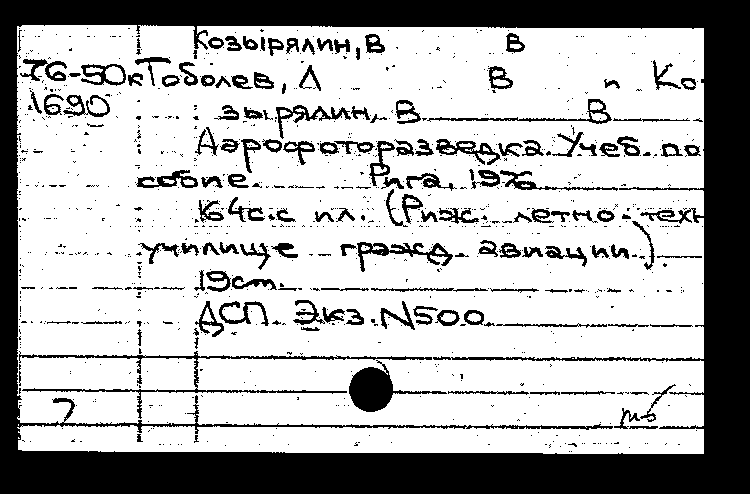 Козырялин, В В
76-50к Тоболев, Л В и Ко-
1690 зырялин, В В
Аэрофоторазведка. Учеб. по
собие. Рига, 1976
164с.с ил. (Риж. летно-техн
училище гражд. авиации).
19cm.
ДСП. Экз. N500.
7